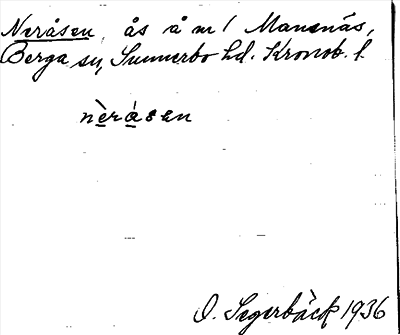 Neråsen, ås å m/ Mansnäs,
Berga sn, Sunnerbo hd. Kronob. l.
nèråsen
O. Segerbäck 1936